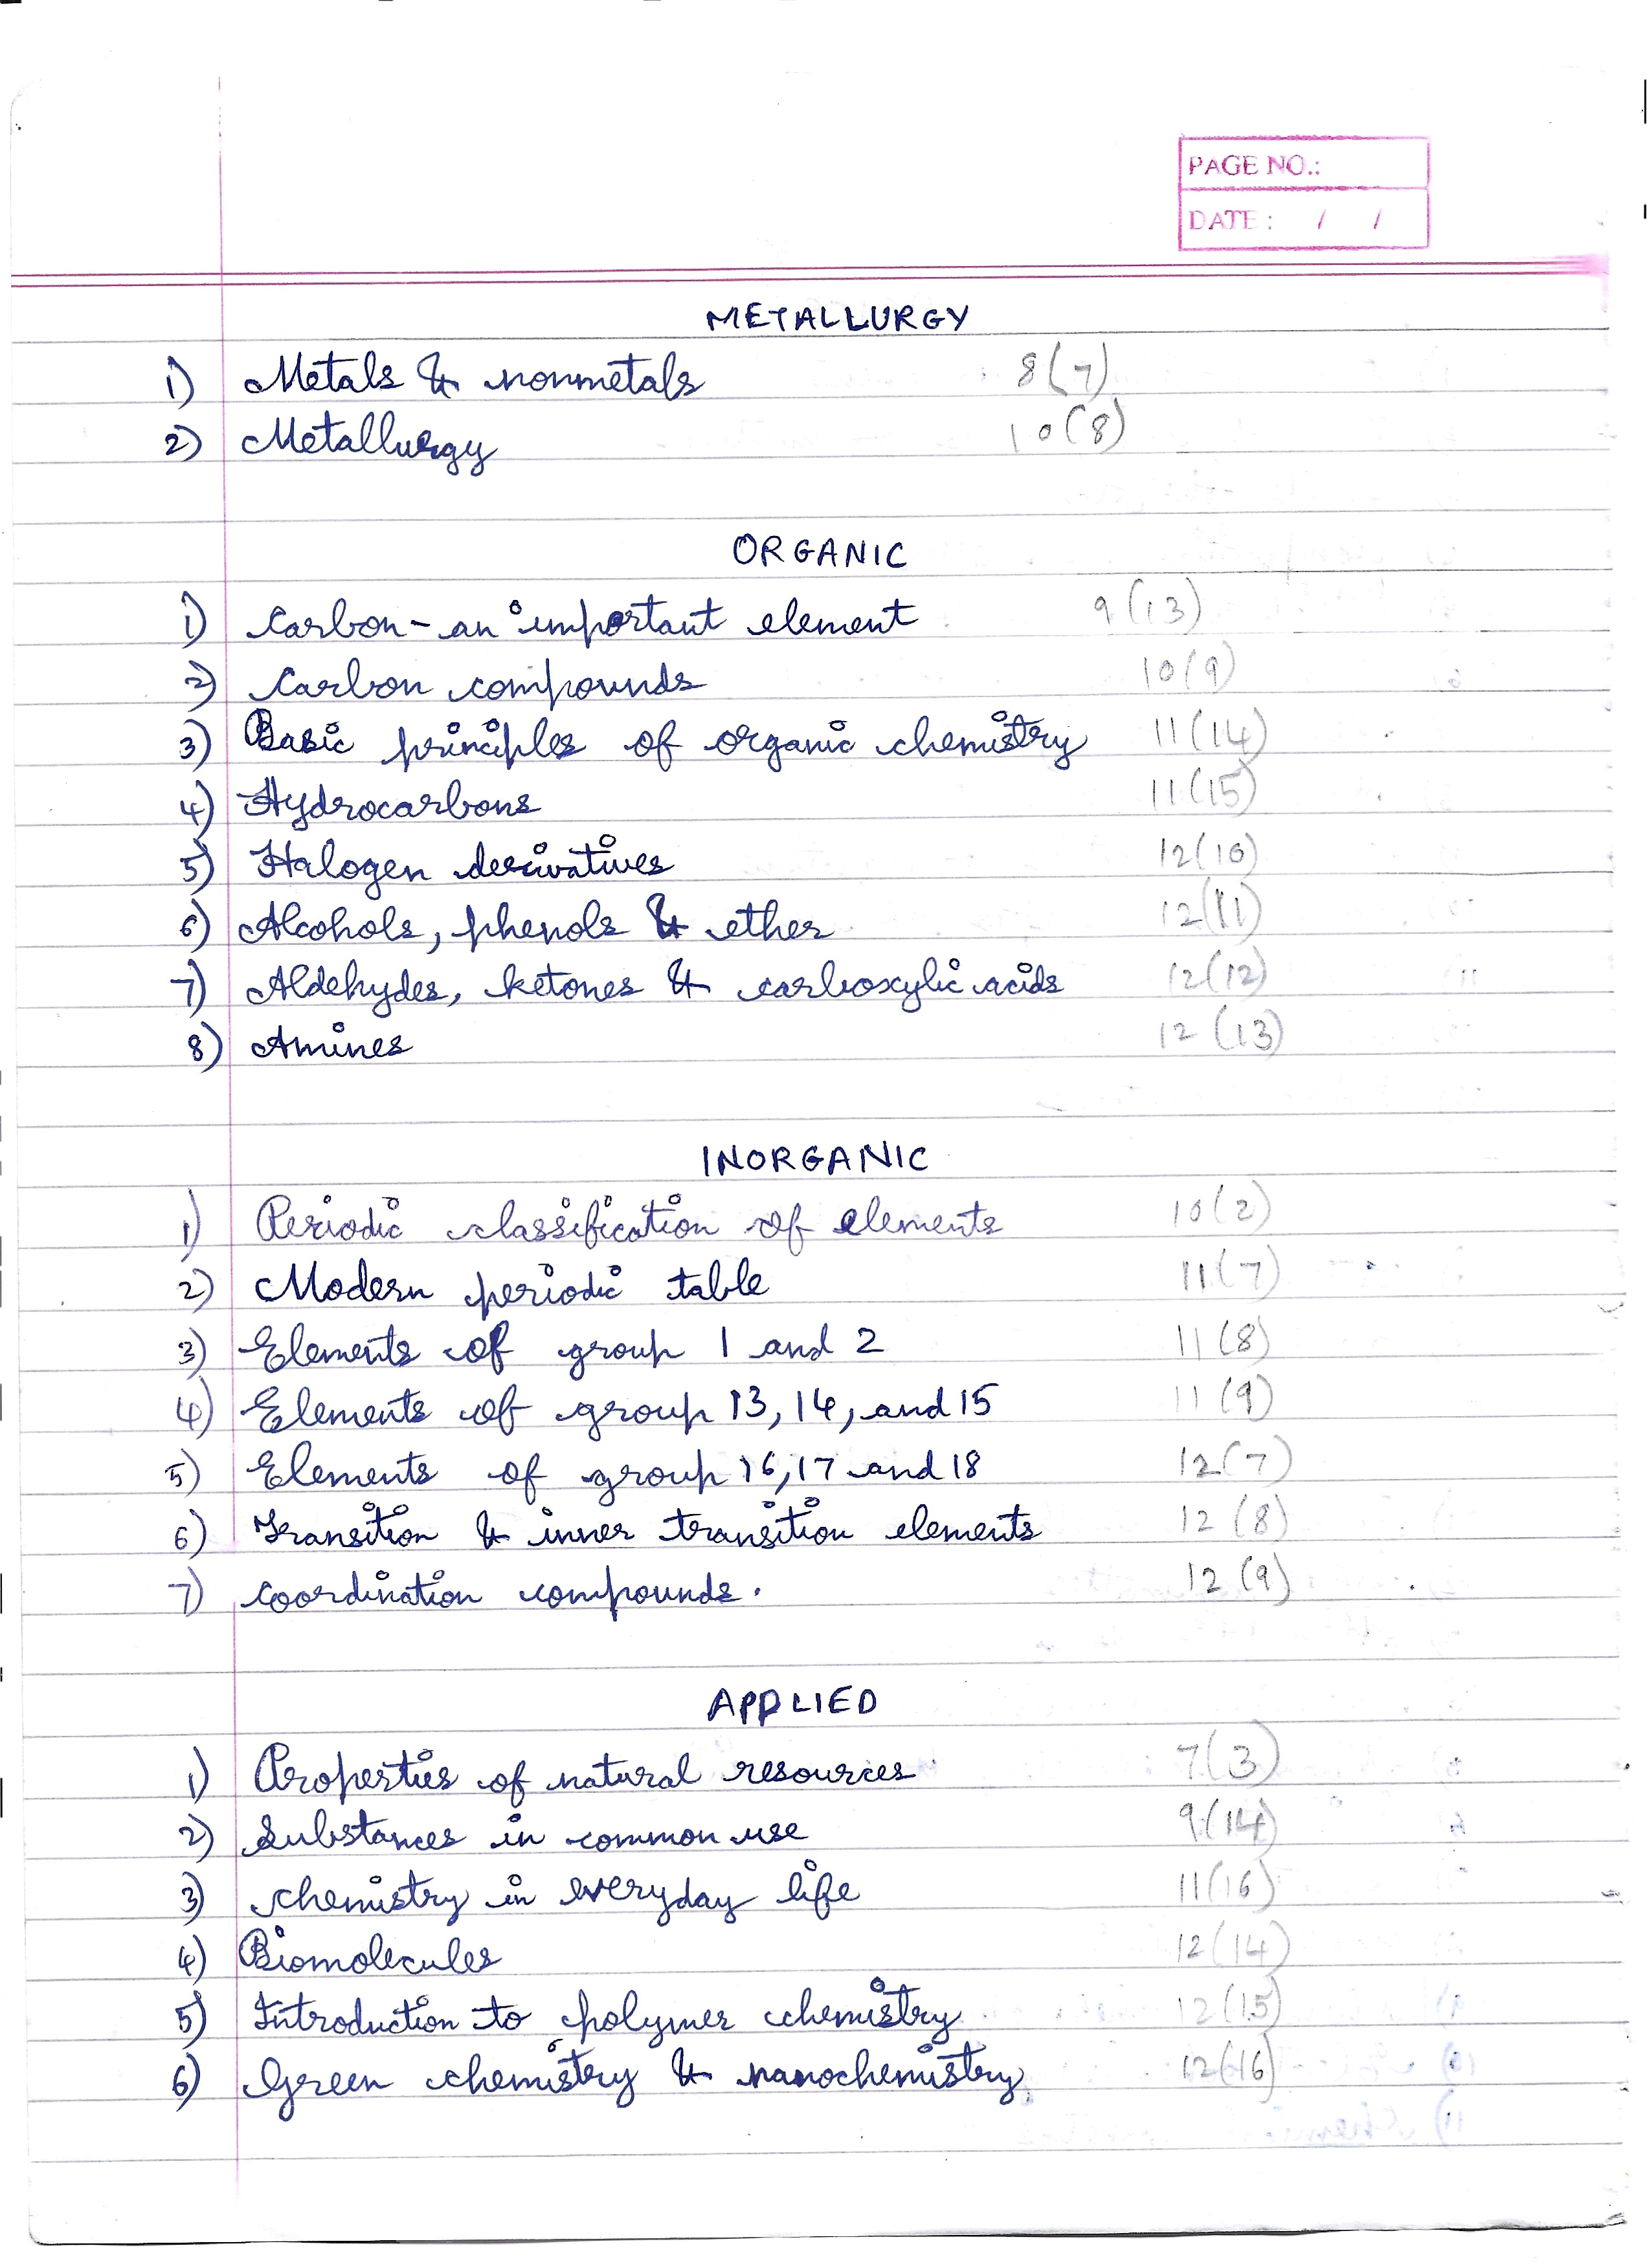 PAGE NO.:
DATE : / /
METALLURGY
1) Metals & nonmetals 8(7)
2) Metallurgy 10(8)
ORGANIC
1) Carbon - an important element 9(13)
2) Carbon compounds 10(9)
3) Basic principles of organic chemistry 11(14)
4) Hydrocarbons 11(15)
5) Halogen derivatives 12(10)
6) Alcohols, phenols & ether 12(11)
7) Aldehydes, ketones & carboxylic acids 12(12)
8) Amines 12(13)
INORGANIC
1) Periodic classification of elements 10(2)
2) Modern periodic table 11(7)
3) Elements of group 1 and 2 11(8)
4) Elements of group 13, 14, and 15 11(9)
5) Elements of group 16, 17 and 18 12(7)
6) Transition & inner transition elements 12(8)
7) Coordination compounds. 12(9)
APPLIED
1) Properties of natural resources 7(3)
2) Substances in common use 9(14)
3) Chemistry in everyday life 11(16)
4) Biomolecules 12(14)
5) Introduction to polymer chemistry 12(15)
6) Green chemistry & nanochemistry 12(16)